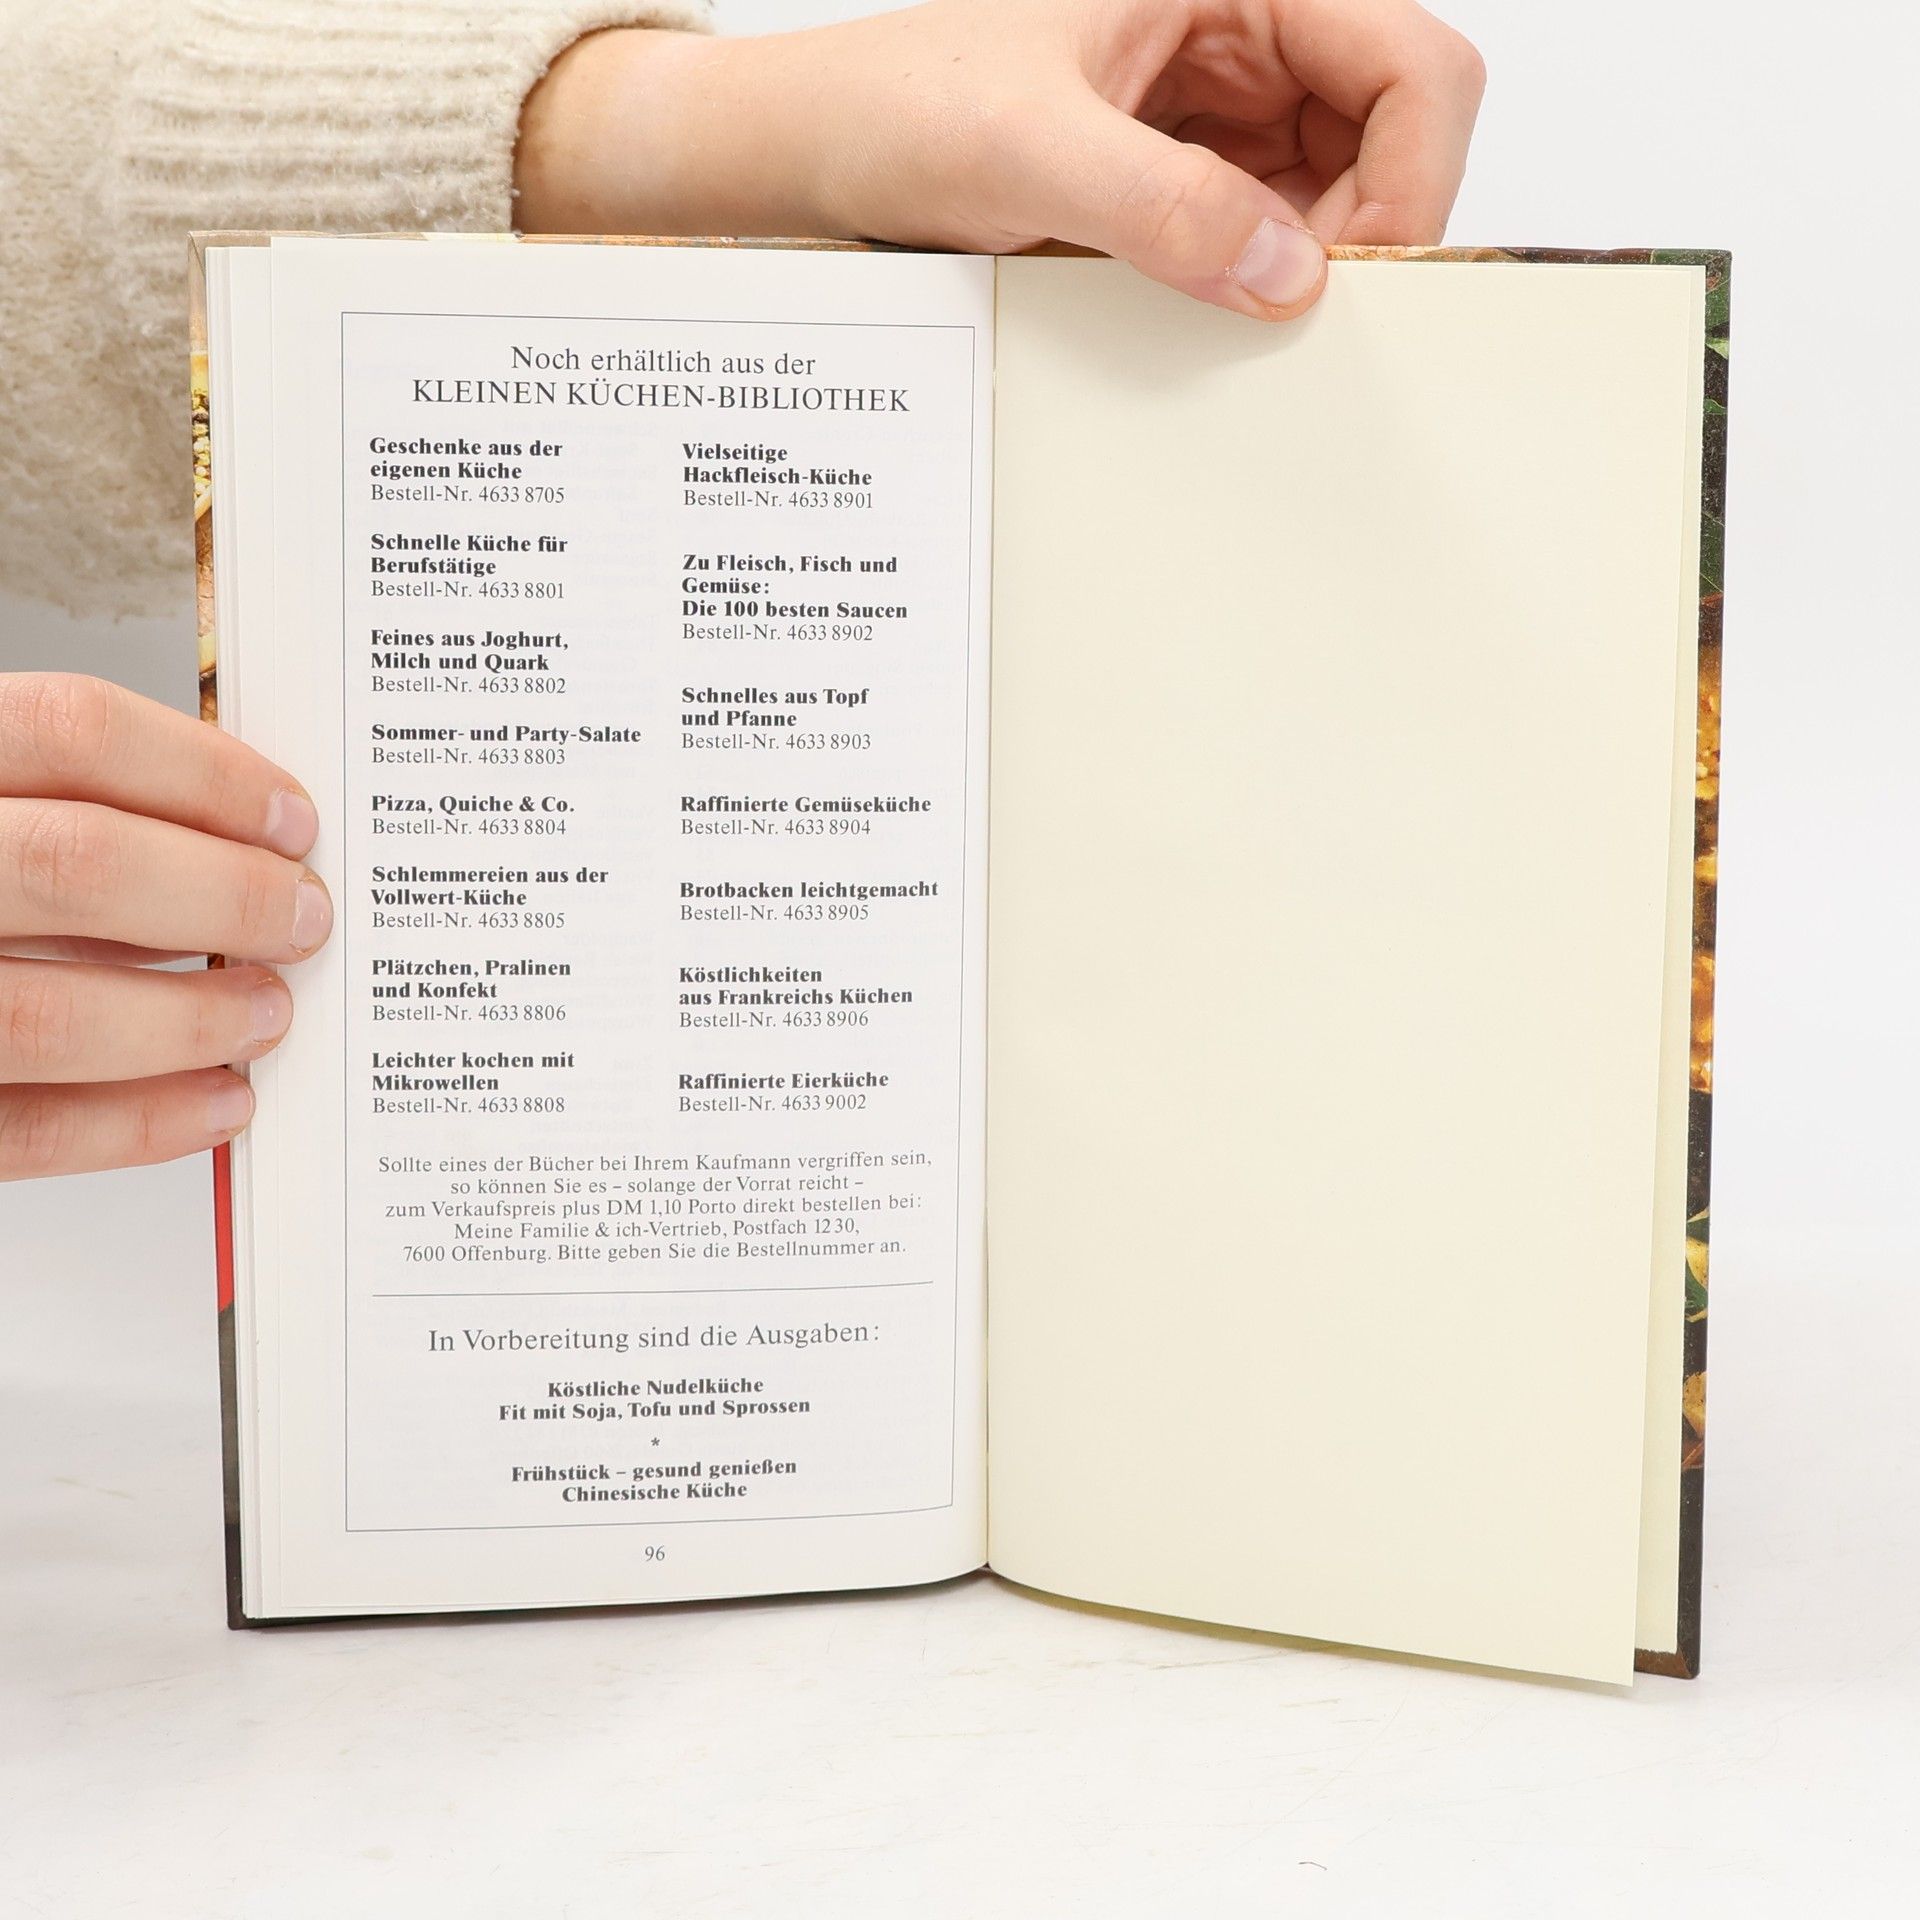 Noch erhältlich aus der
KLEINEN KÜCHEN-BIBLIOTHEK
Geschenke aus der
eigenen Küche
Bestell-Nr. 4633 8705
Schnelle Küche für
Berufstätige
Bestell-Nr. 4633 8801
Feines aus Joghurt,
Milch und Quark
Bestell-Nr. 4633 8802
Sommer- und Party-Salate
Bestell-Nr. 4633 8803
Pizza, Quiche & Co.
Bestell-Nr. 4633 8804
Schlemmereien aus der
Vollwert-Küche
Bestell-Nr. 4633 8805
Plätzchen, Pralinen
und Konfekt
Bestell-Nr. 4633 8806
Leichter kochen mit
Mikrowellen
Bestell-Nr. 4633 8808
Vielseitige
Hackfleisch-Küche
Bestell-Nr. 4633 8901
Zu Fleisch, Fisch und
Gemüse:
Die 100 besten Saucen
Bestell-Nr. 4633 8902
Schnelles aus Topf
und Pfanne
Bestell-Nr. 4633 8903
Raffinierte Gemüseküche
Bestell-Nr. 4633 8904
Brotbacken leichtgemacht
Bestell-Nr. 4633 8905
Köstlichkeiten
aus Frankreichs Küchen
Bestell-Nr. 4633 8906
Raffinierte Eierküche
Bestell-Nr. 4633 9002
Sollte eines der Bücher bei Ihrem Kaufmann vergriffen sein,
so können Sie es – solange der Vorrat reicht –
zum Verkaufspreis plus DM 1,10 Porto direkt bestellen bei:
Meine Familie & ich-Vertrieb, Postfach 12 30,
7600 Offenburg. Bitte geben Sie die Bestellnummer an.
In Vorbereitung sind die Ausgaben:
Köstliche Nudelküche
Fit mit Soja, Tofu und Sprossen
*
Frühstück – gesund genießen
Chinesische Küche
96